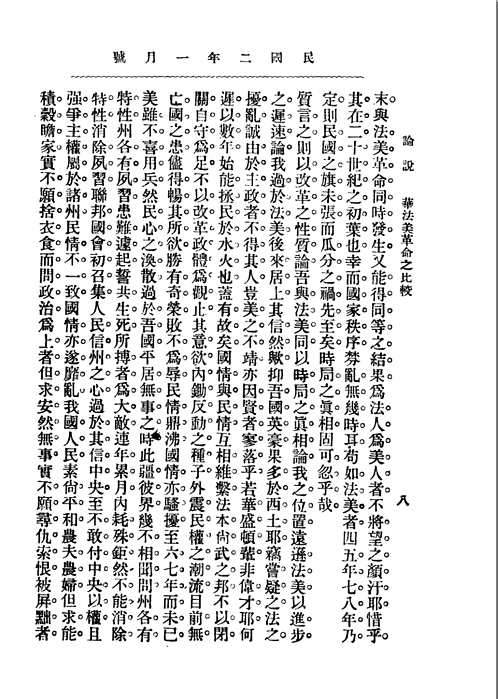 民國二年一月號
論說　華法美革命之比較
八
末與法美革命同時發生又能得同等之結果爲法人爲美人者不將望之顏汗耶惜乎
其在二十世紀之初葉也幸而國家秩序棼亂無幾時耳苟如法美者四五年七八年乃
定則民國之旗未張而瓜分之禍先至矣時局之眞相固可忽乎哉
質言之則以改革之性質論吾與法美同以時局之眞相論我之位置遠遜法美以進步
之遲速論我過於法美後來居上其信然歟抑吾國英豪果多於西土耶竊嘗疑之法之
擾亂誠由於主政者不得其人豈美之不靖亦因賢者寥落乎若華盛頓輩非偉才耶何
遲以數年始能拯民於水火也蓋有故矣國情與民情互相維繫法本尙武之邦不以閉
關自守爲足不以改革政體爲觀止其意欲內鋤反動之種子外震民權之潮流目前無
亡國之患儘得暢其所欲勝有奇榮敗不爲辱民情鼎沸國情亦騷擾至六七年而未已
美雖不喜用兵然民心之渙散過於吾國平居無事之時此疆彼界幾不相聞問州各有
特性州各有夙習患難遽起誓共生死所搏者爲大敵連年累月內耗殊鉅然不能消除
特性消除夙習聯邦國會初召集人民信州之心過於其信中央至不敢付中央以權且
强爭主權屬於諸州民情不一致國情亦遂靡亂我國人民素尙平和農夫農婦但求能
積穀贍家實不願捨衣食而問政治爲上者但求安然無事實不願尋仇索恨被屏黜者